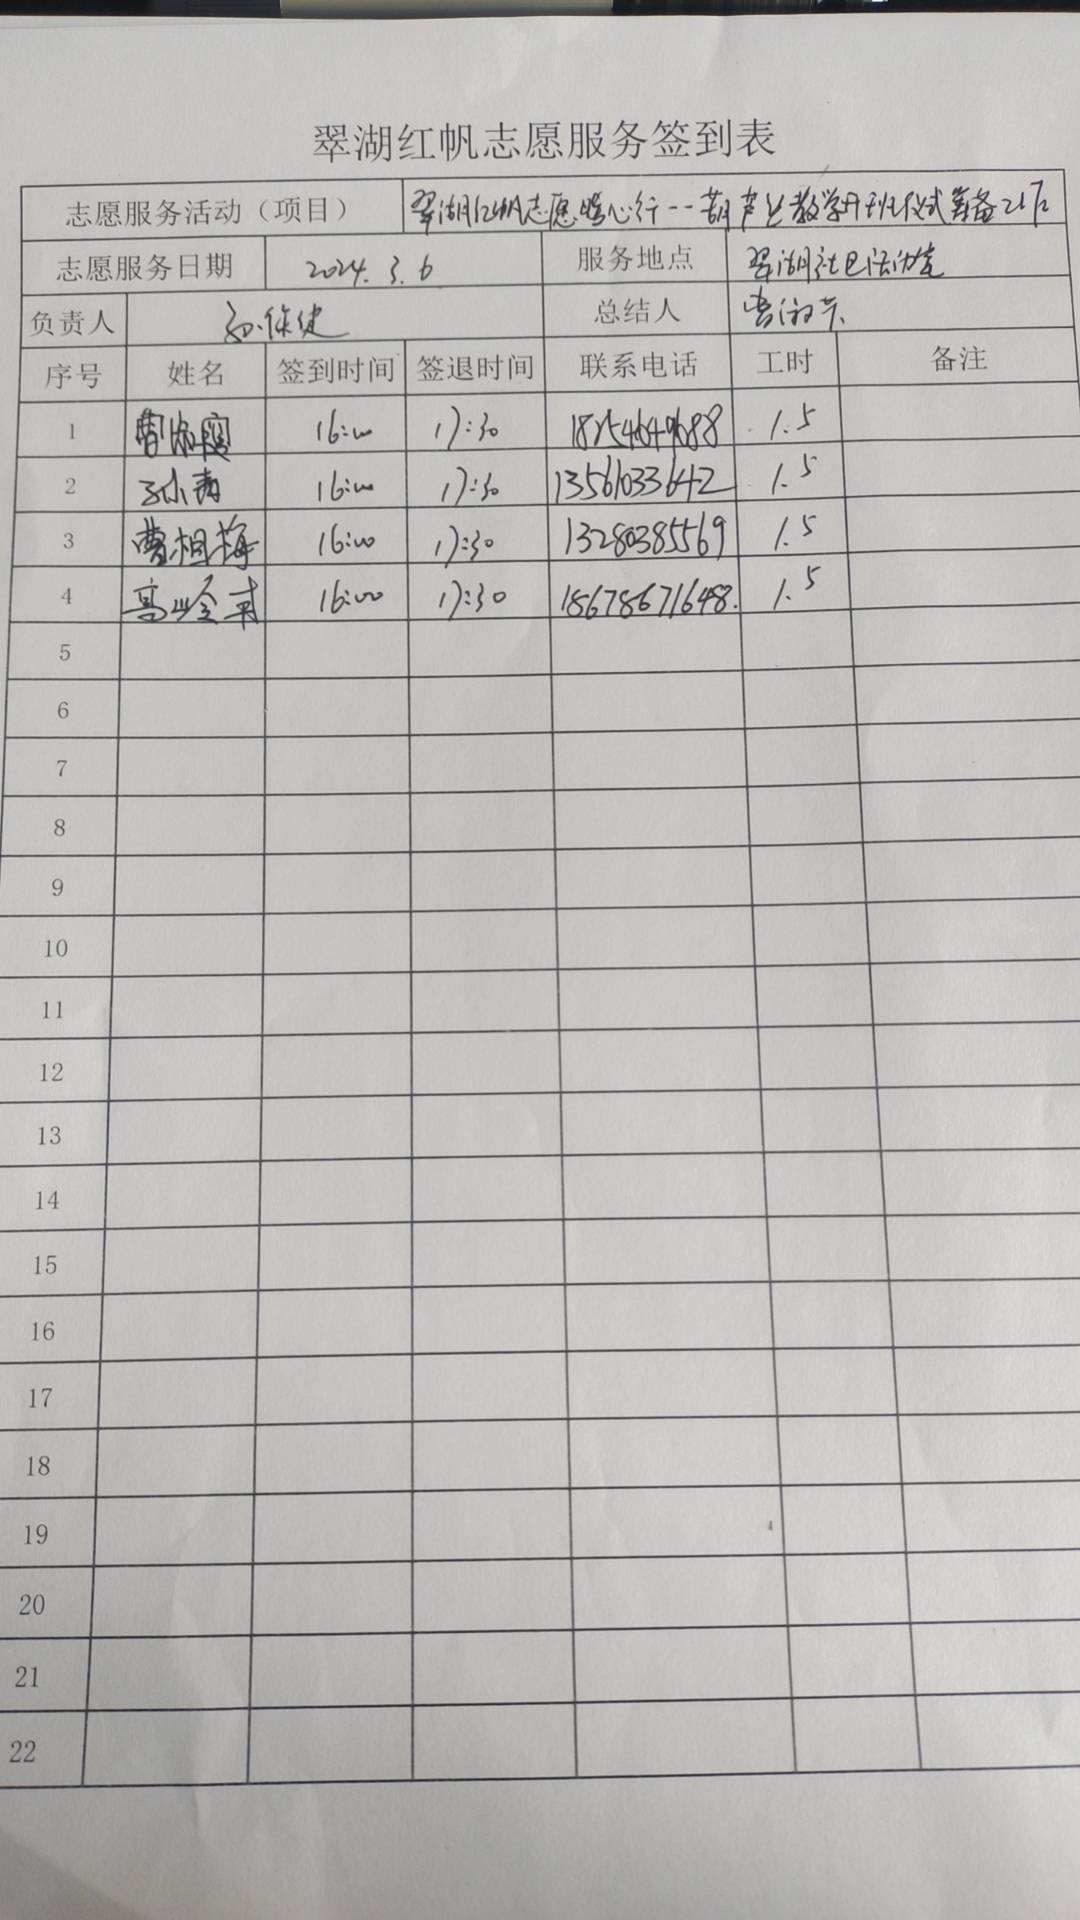 翠湖红帆志愿服务签到表
志愿服务活动（项目） 翠湖红帆志愿暖心行--葫芦丝教学开班仪式筹备
志愿服务日期 2024.3.6 服务地点 翠湖社区活动室
负责人 总结人
序号 姓名 签到时间 签退时间 联系电话 工时 备注
1 16:00 17:30 18254649688 1.5
2 16:00 17:30 13561033642 1.5
3 曹相梅 16:00 17:30 13280385569 1.5
4 16:00 17:30 18678671648. 1.5
5
6
7
8
9
10
11
12
13
14
15
16
17
18
19
20
21
22